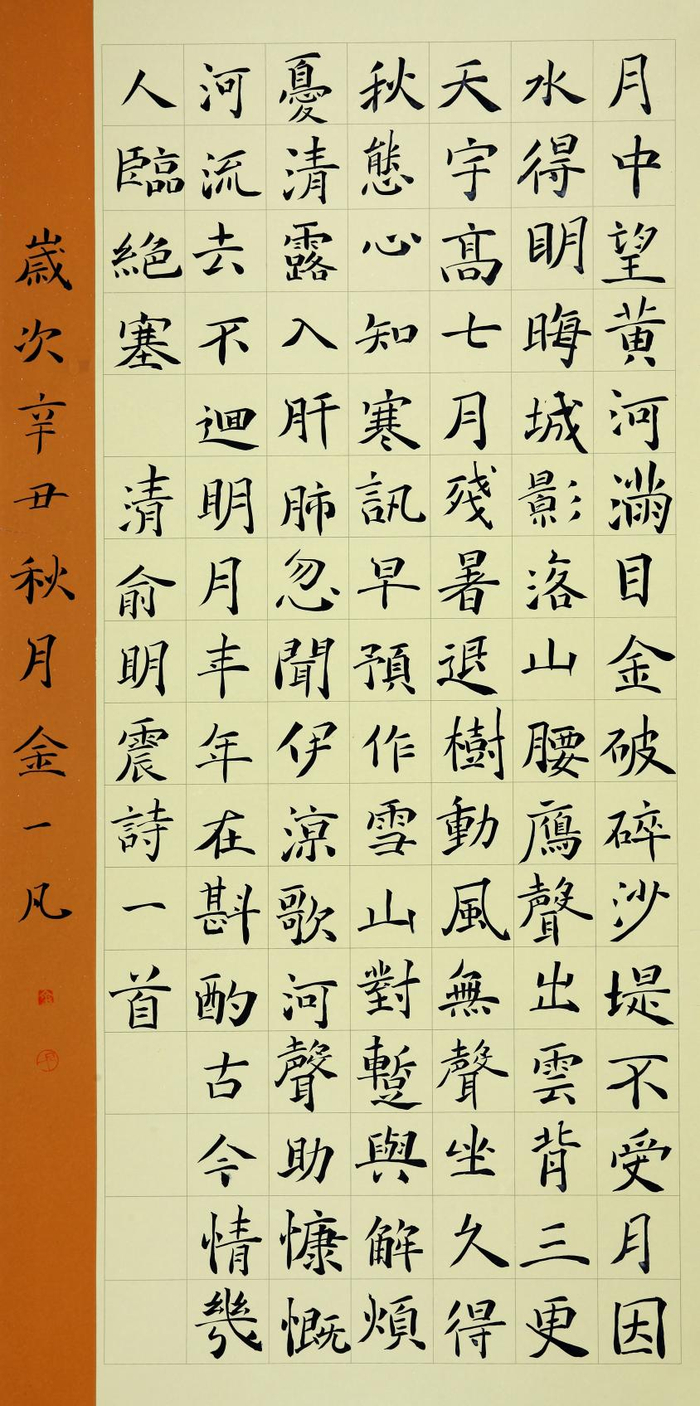 月中望黃河滿目金破碎沙堤不受月因
水得明晦城影落山腰鴈聲出雲背三更
天宇高七月殘暑退樹動風無聲坐久得
秋態心知寒訊早預作雪山對蹔與解煩
憂清露入肝肺忽聞伊涼歌河聲助慷慨
河流去不迴明月年年在斟酌古今情幾
人臨絕塞 清俞明震詩一首
歲次辛丑秋月金一凡